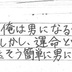 俺は男になる
しかし、運命と
そう簡単に男に